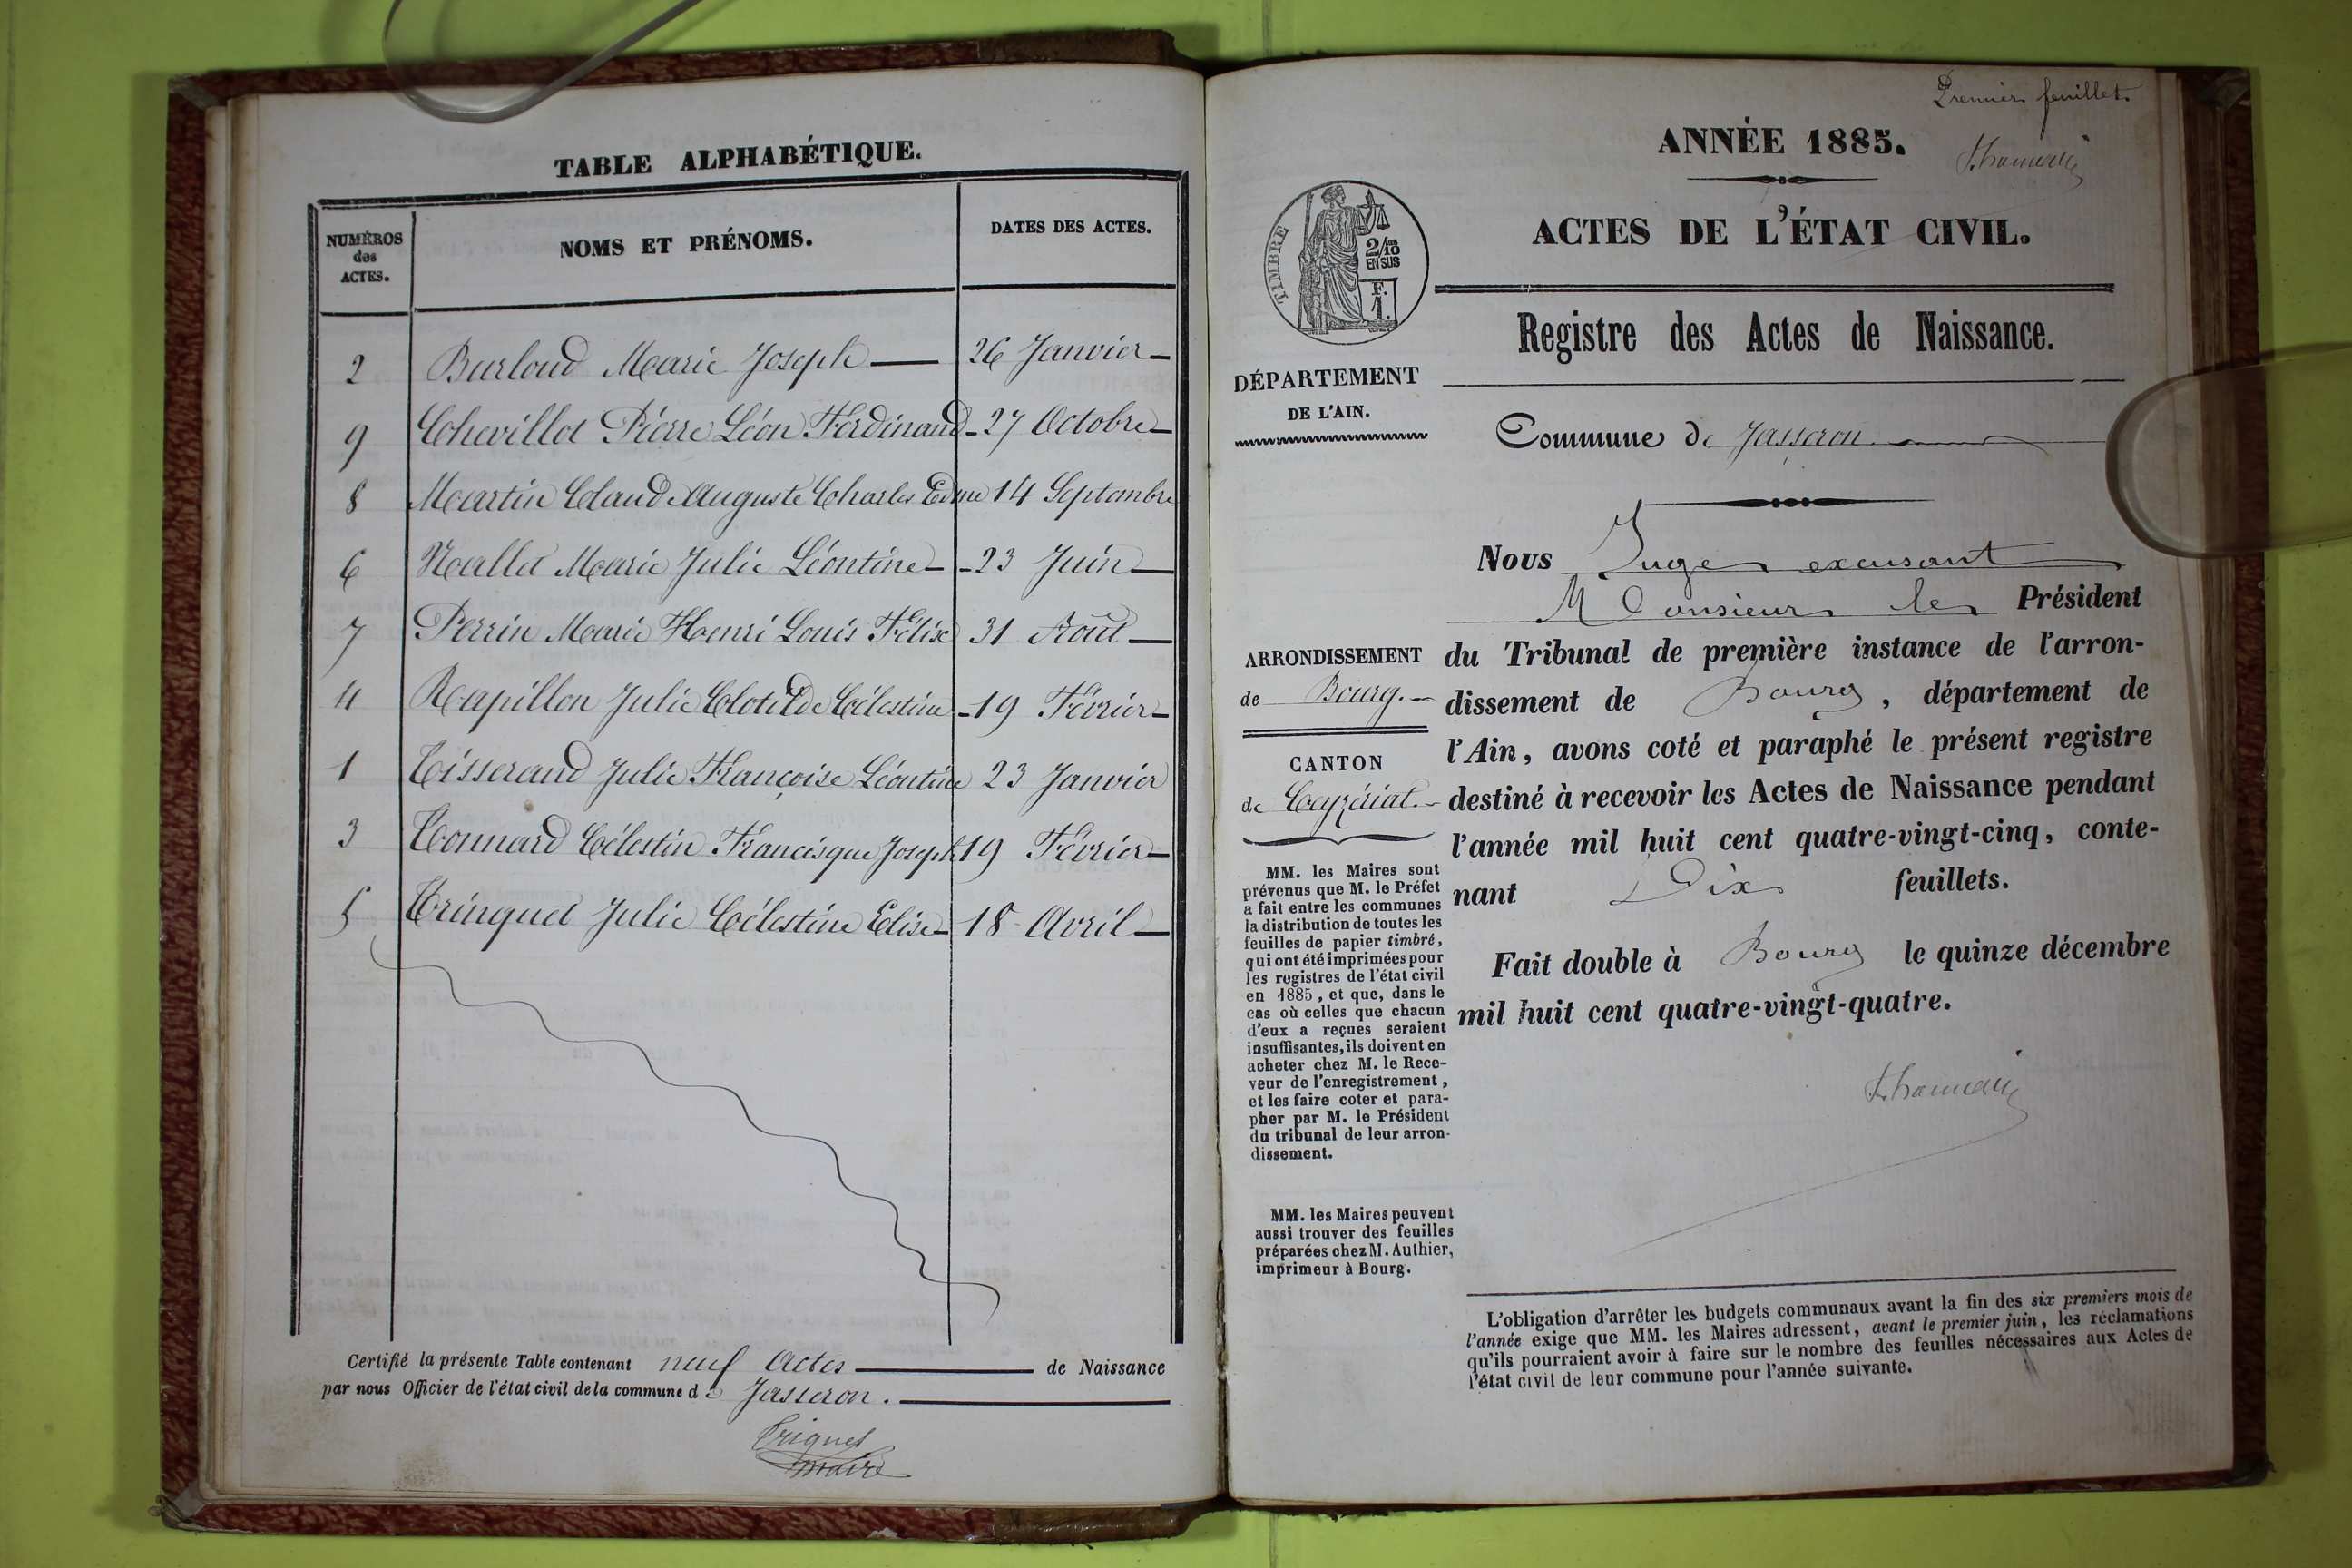 TABLE ALPHABÉTIQUE.
NUMÉROS
des
ACTES.
NOMS ET PRÉNOMS.
DATES DES ACTES.
2 Burloud Marie Joseph 26 Janvier
9 Chevillot Pierre Léon Ferdinand 27 Octobre
8 Martin Claude Auguste Charles Edme 14 Septembre
6 Nallet Marie Julie Léontine 23 Juin
7 Perrin Marie Henri Louis Félix 31 Août
4 Rapillon Julie Clotilde Célestine 19 Février
1 Tisserand Julie Françoise Léontine 23 Janvier
3 Tonnard Célestin Francisque Joseph 19 Février
5 Tringuet Julie Célestine Elise 18 Avril
Certifié la présente Table contenant neuf Actes de Naissance
par nous Officier de l'état civil de la commune de Jasseron.
maire
Premier feuillet
ANNÉE 1885.
ACTES DE L'ÉTAT CIVIL.
TIMBRE
2/10
EN SUS
F.
1.
Registre des Actes de Naissance.
DÉPARTEMENT
DE L'AIN.
Commune de Jasseron
ARRONDISSEMENT
de Bourg.
CANTON
de Ceyzériat.
MM. les Maires sont
prévenus que M. le Préfet
a fait entre les communes
la distribution de toutes les
feuilles de papier timbré,
qui ont été imprimées pour
les registres de l'état civil
en 1885, et que, dans le
cas où celles que chacun
d'eux a reçues seraient
insuffisantes, ils doivent en
acheter chez M. le Rece-
veur de l'enregistrement,
et les faire coter et para-
pher par M. le Président
du tribunal de leur arron-
dissement.
MM. les Maires peuvent
aussi trouver des feuilles
préparées chez M. Authier,
imprimeur à Bourg.
Nous Juge excusant
Monsieur le Président
du Tribunal de première instance de l'arron-
dissement de Bourg, département de
l'Ain, avons coté et paraphé le présent registre
destiné à recevoir les Actes de Naissance pendant
l'année mil huit cent quatre-vingt-cinq, conte-
nant Dix feuillets.
Fait double à Bourg le quinze décembre
mil huit cent quatre-vingt-quatre.
L'obligation d'arrêter les budgets communaux avant la fin des six premiers mois de
l'année exige que MM. les Maires adressent, avant le premier juin, les réclamations
qu'ils pourraient avoir à faire sur le nombre des feuilles nécessaires aux Actes de
l'état civil de leur commune pour l'année suivante.